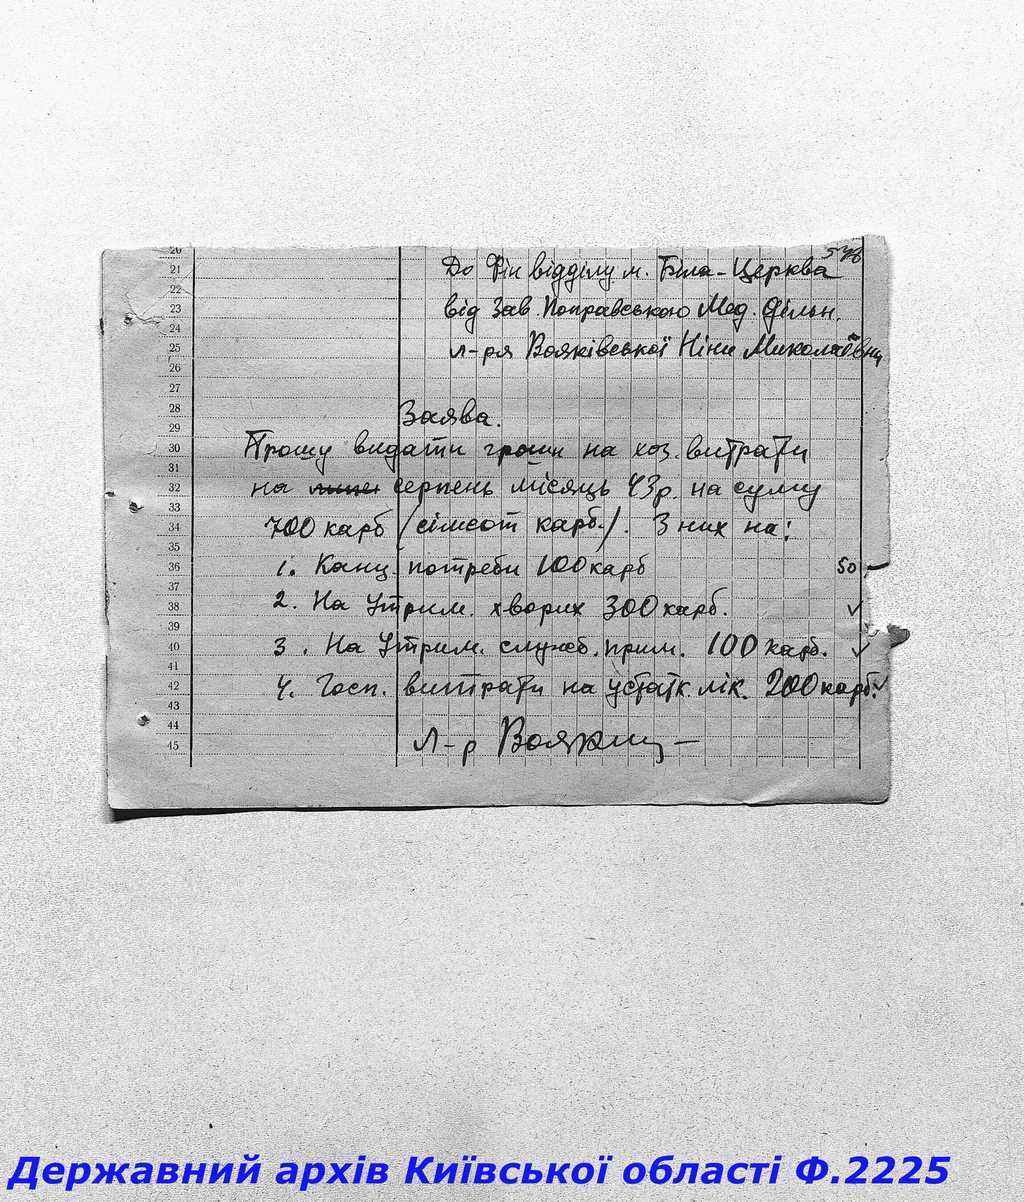 578
20
21
22
23
24
25
26
27
28
29
30
31
32
33
34
35
36
37
38
39
40
41
42
43
44
45
До Фін відділу м. Біла-Церква
від Зав. Поправською Мед. Дільн.
л-ря Вояківської Ніни Миколаївни
Заява.
Прошу видати гроши на хоз. витрати
на серпень місяць 43р. на суму
700 карб (сімсот карб.). З них на:
1. Канц. потреби 100 карб 50
2. На Утрим. хворих 300 карб.
3. На Утрим. служб. прим. 100 карб.
4. Госп. витрати на устатк. лік. 200 карб.
Л-р
Державний архів Київської області Ф.2225